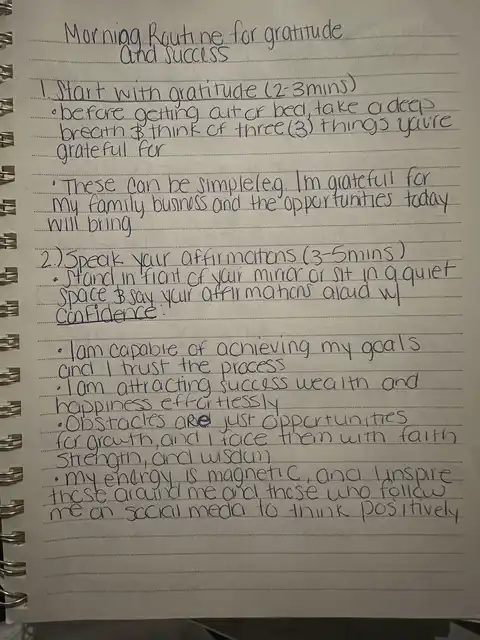 Morning Routine for gratitude
and success
1. Start with gratitude (2-3mins)
• before getting out of bed, take a deep
breath & think of three (3) things you're
grateful for
• These can be simple(eg. I'm grateful for
my family busness and the opportunities today
will bring
2.) Speak your affirmations (3-5mins)
• Stand in front of your mirror or sit in a quiet
space & say your affirmations aloud w/
confidence:
• I am capable of achieving my goals
and I trust the process
• I am attracting success wealth and
happiness effortlessly
• Obstacles are just opportunities
for growth, and I face them with faith
strength, and wisdom
• my energy is magnetic, and I inspire
those around me and those who follow
me on social media to think positively